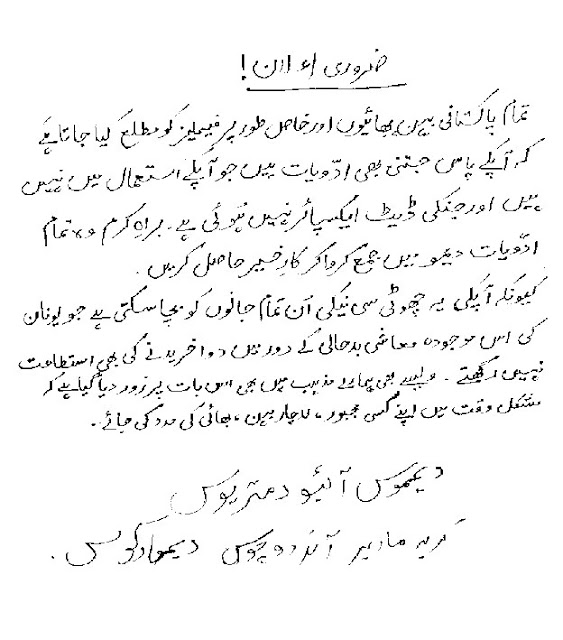 ضروری اعلان!
تمام پاکستانی بہن بھائیوں اور خاص طور پر فیملیز کو مطلع کیا جاتا ہے
کہ آپکے پاس جتنی بھی ادّویات ہیں جو آپکے استعمال میں نہیں
ہیں اور جنکی ڈیٹ ایکسپائر نہیں ہوئی ہے۔ براہ کرم وہ تمام
ادّویات دیمو میں جمع کروا کر کارِ خیر حاصل کریں۔
کیونکہ آپکی یہ چھوٹی سی نیکی اُن تمام جانوں کو بچا سکتی ہے جو یونان
کی اس موجودہ معاشی بدحالی کے دور میں دوا خریدنے کی بھی استطاعت
نہیں رکھتے۔ ویسے بھی ہمارے مذہب میں بھی اس بات پر زور دیا گیا ہے کہ
مشکل وقت میں اپنے کسی مجبور، لاچار بہن، بھائی کی مدد کی جائے۔
دیموس آئیو دمتریوس
کریہ ماریہ آندروچوس دیمارکوس۔